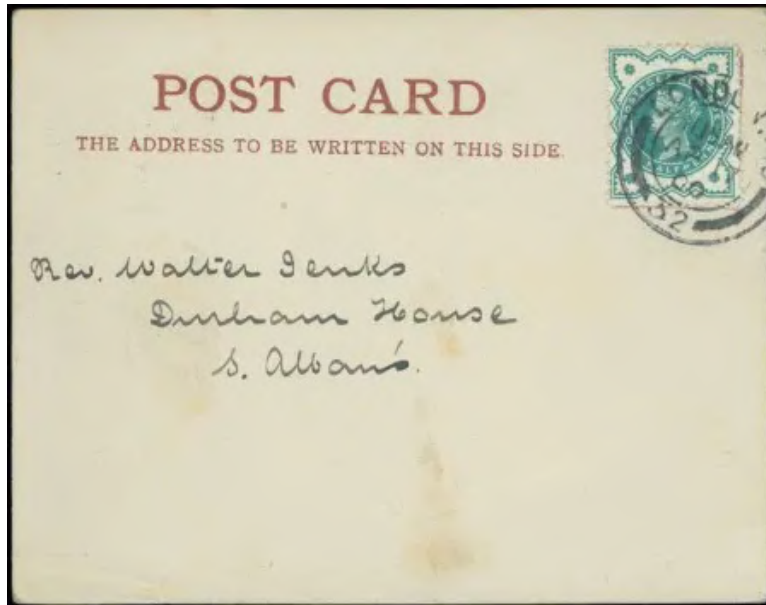 POST CARD
THE ADDRESS TO BE WRITTEN ON THIS SIDE.
Rev. Walter Jenks
Durham House
S. Alban's.
32